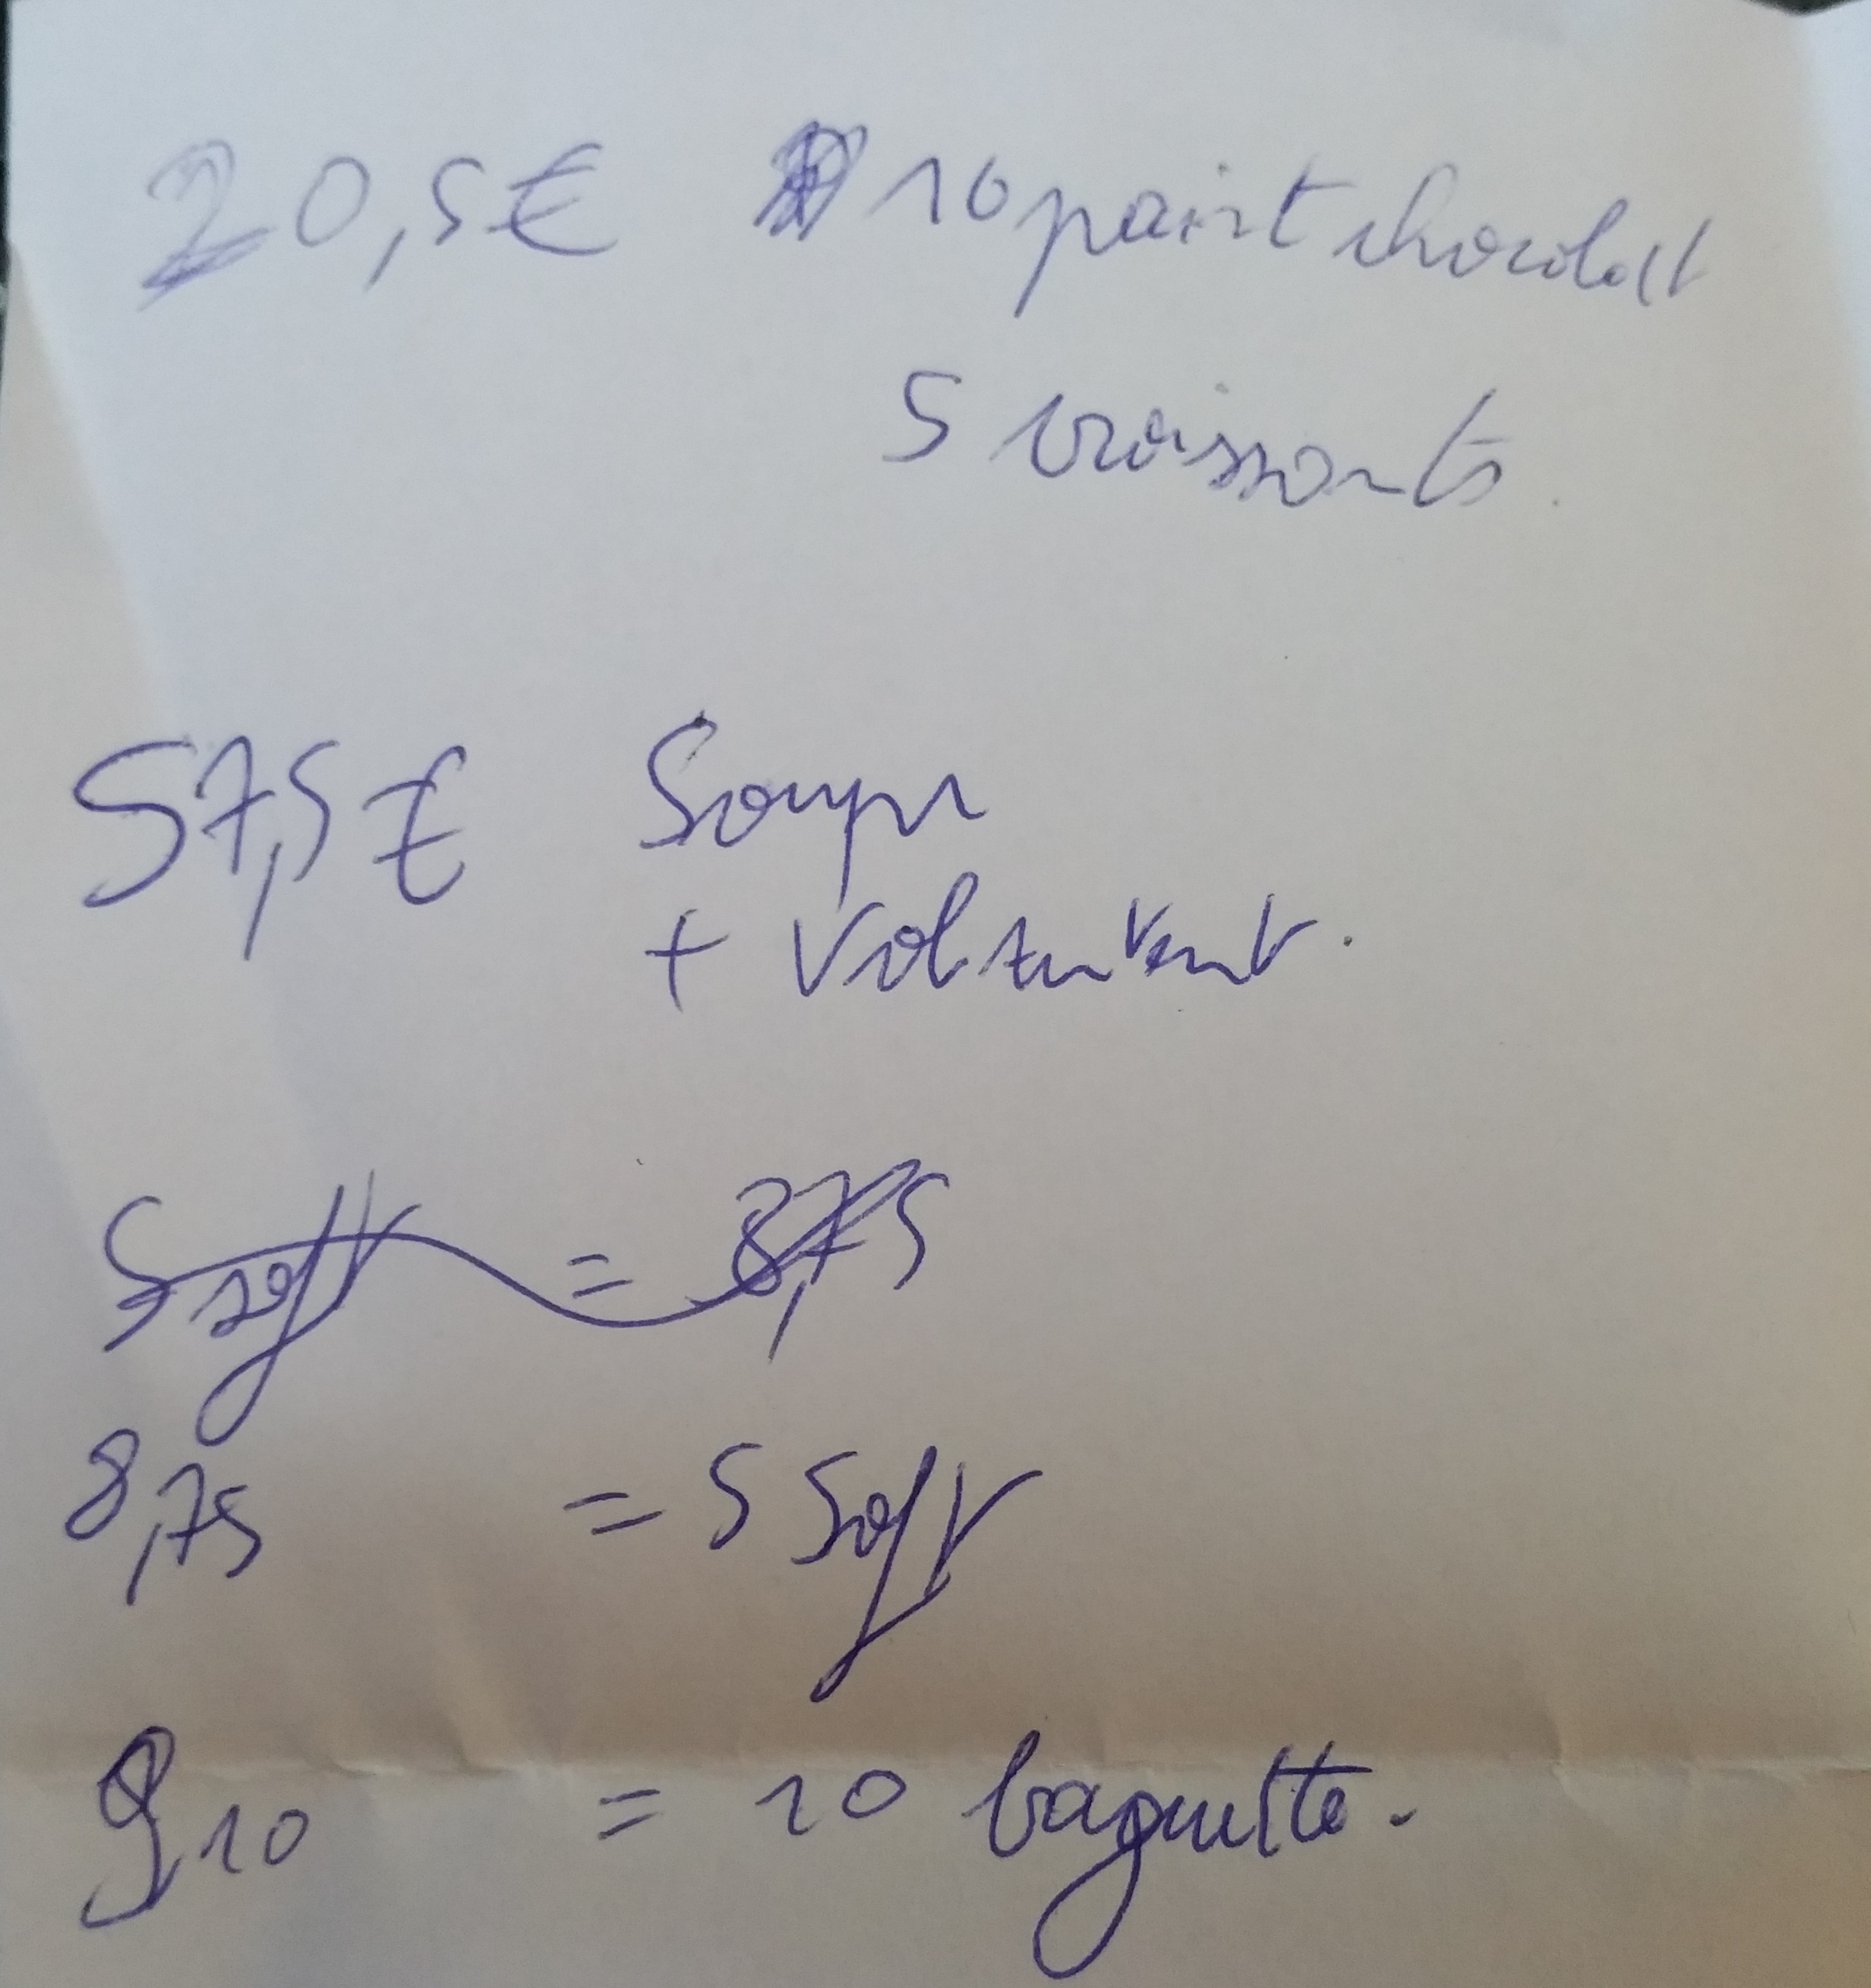 20,5€ 10 paint chocolat
5 croissants.
57,5€ Soupe
+ Vol au vent.
5 soft = 8,75
8,75 = 5 Soft
9,10 = 10 baguette.